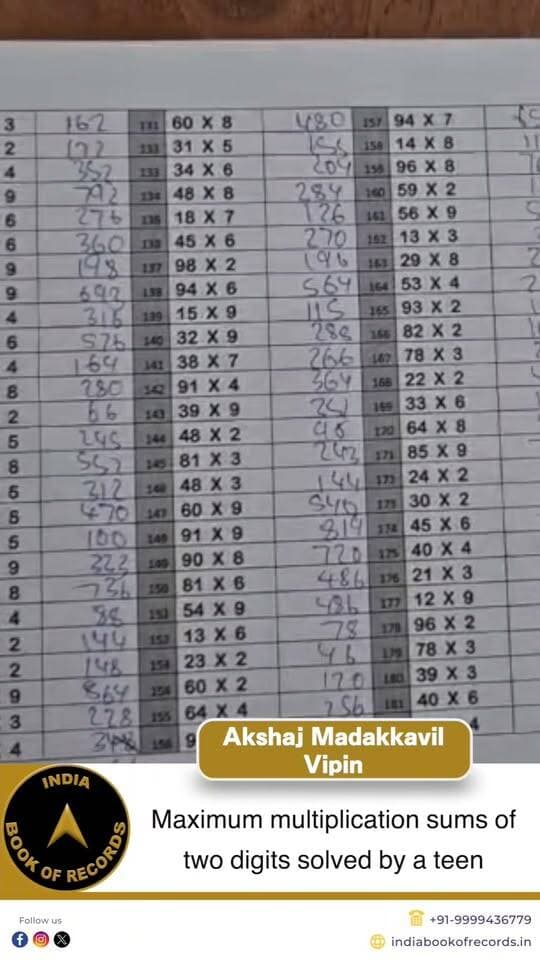 3 162 131 60 X 8 480 157 94 X 7
2 172 133 31 X 5 155 158 14 X 8
4 352 133 34 X 6 204 158 96 X 8
9 792 134 48 X 8 284 160 59 X 2
6 276 136 18 X 7 126 161 56 X 9
6 360 136 45 X 6 270 162 13 X 3
9 198 137 98 X 2 196 163 29 X 8
9 692 138 94 X 6 564 164 53 X 4
4 316 139 15 X 9 115 165 93 X 2
6 576 140 32 X 9 288 166 82 X 2
4 164 141 38 X 7 266 167 78 X 3
8 280 142 91 X 4 364 168 22 X 2
2 66 143 39 X 9 251 169 33 X 6
5 245 144 48 X 2 96 170 64 X 8
8 552 145 81 X 3 243 171 85 X 9
5 312 146 48 X 3 144 173 24 X 2
5 470 147 60 X 9 540 173 30 X 2
5 100 148 91 X 9 819 174 45 X 6
9 322 149 90 X 8 720 175 40 X 4
8 736 150 81 X 6 486 176 21 X 3
4 88 151 54 X 9 486 177 12 X 9
2 144 152 13 X 6 78 178 96 X 2
2 148 154 23 X 2 46 179 78 X 3
9 864 154 60 X 2 120 180 39 X 3
3 228 155 64 X 4 256 181 40 X 6
4 156 9 4
Akshaj Madakkavil
Vipin
INDIA
BOOK OF RECORDS
Maximum multiplication sums of
two digits solved by a teen
Follow us
+91-9999436779
indiabookofrecords.in